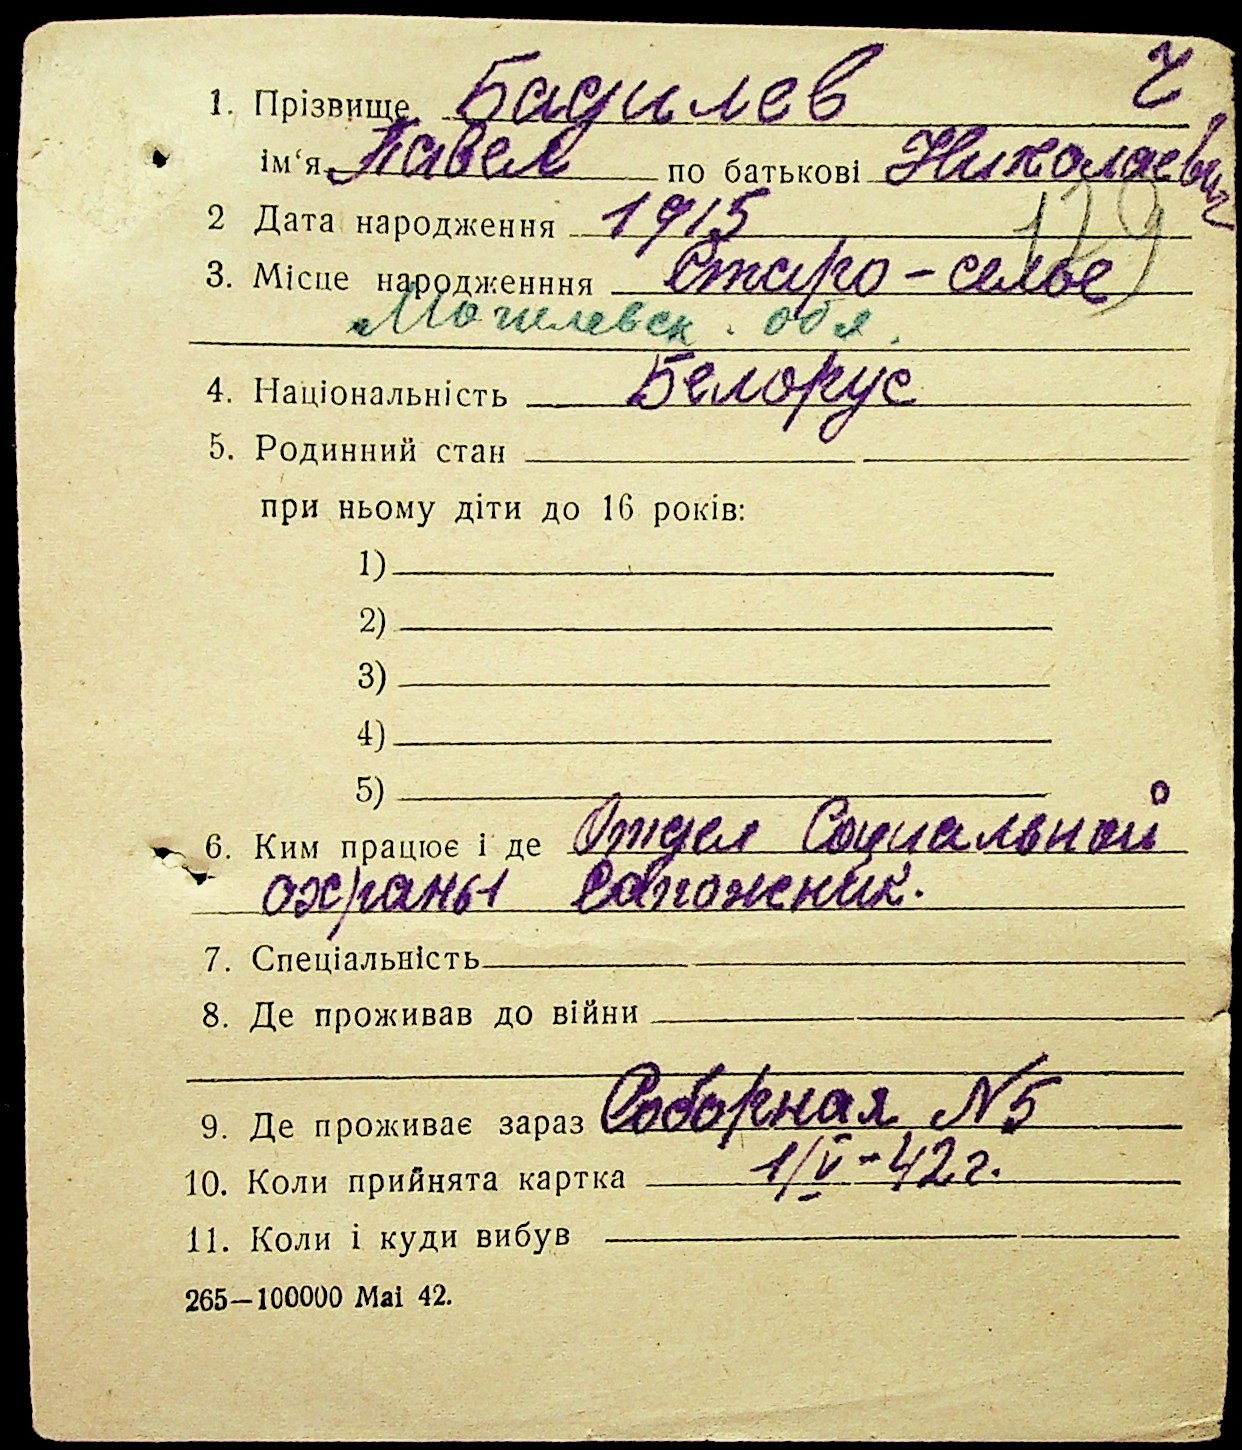 ч
1. Прізвище Бадилев
ім‘я Павел по батькові Николаевич
129
2 Дата народження 1915
3. Місце народженння Старо-селье
Могилевск. обл.
4. Національність Белорус
5. Родинний стан
при ньому діти до 16 років:
1)
2)
3)
4)
5)
6. Ким працює і де Отдел Социальной
охраны Сапожник.
7. Спеціальність
8. Де проживав до війни
9. Де проживає зараз Соборная №5
10. Коли прийнята картка 1/V-42г.
11. Коли і куди вибув
265—100000 Mai 42.